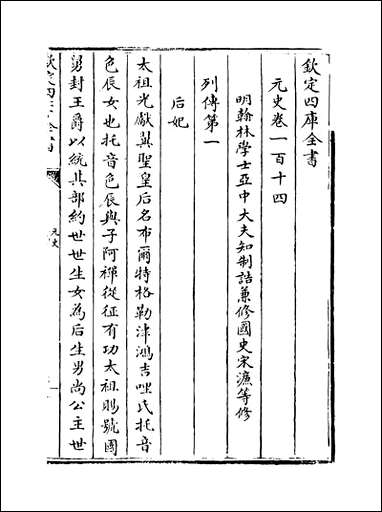 欽定四庫全書
元史卷一百十四
明翰林學士亞中大夫知制誥兼修國史宋濂等修
列傳第一
后妃
太祖光獻翼聖皇后名布爾特格勒津鴻吉哩氏托音
色辰女也托音色辰與子阿禪從征有功太祖賜號國
舅封王爵以統其部約世世生女為后生男尚公主世
元史